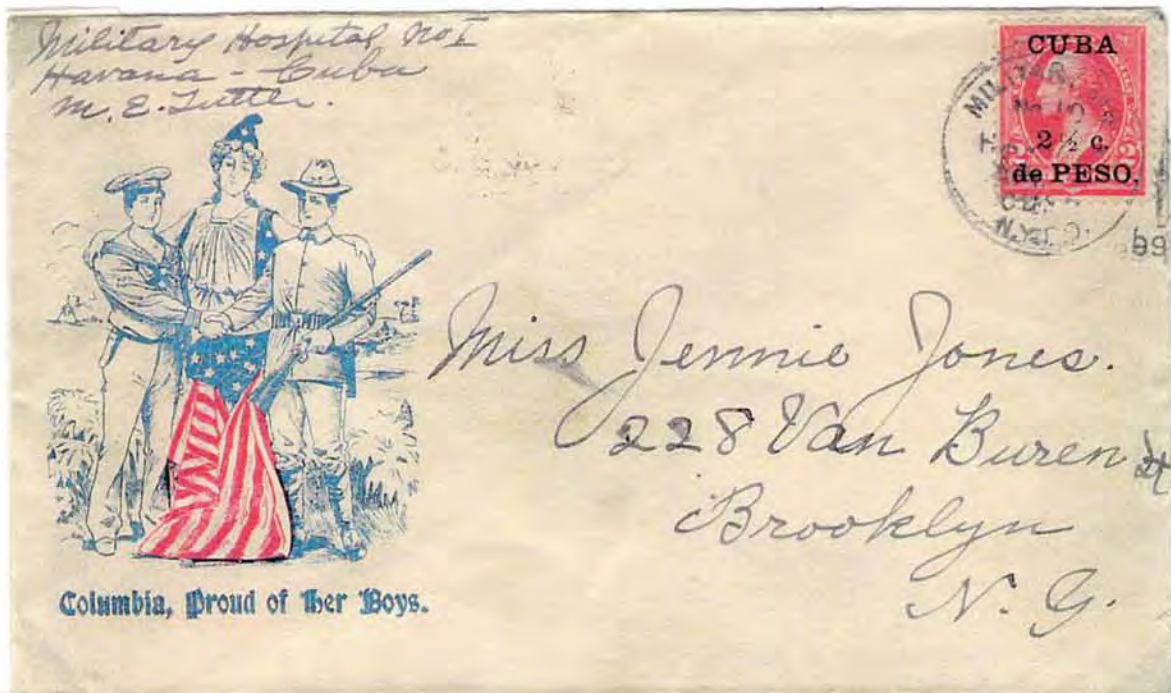 Military Hospital No I
Havana - Cuba
M. E. Tuttle.
CUBA
2 ½ c.
de PESO.
MILITAR
N.Y.
99
Miss Jennie Jones.
228 Van Buren St
Brooklyn
N. Y.
Columbia, Proud of Her Boys.